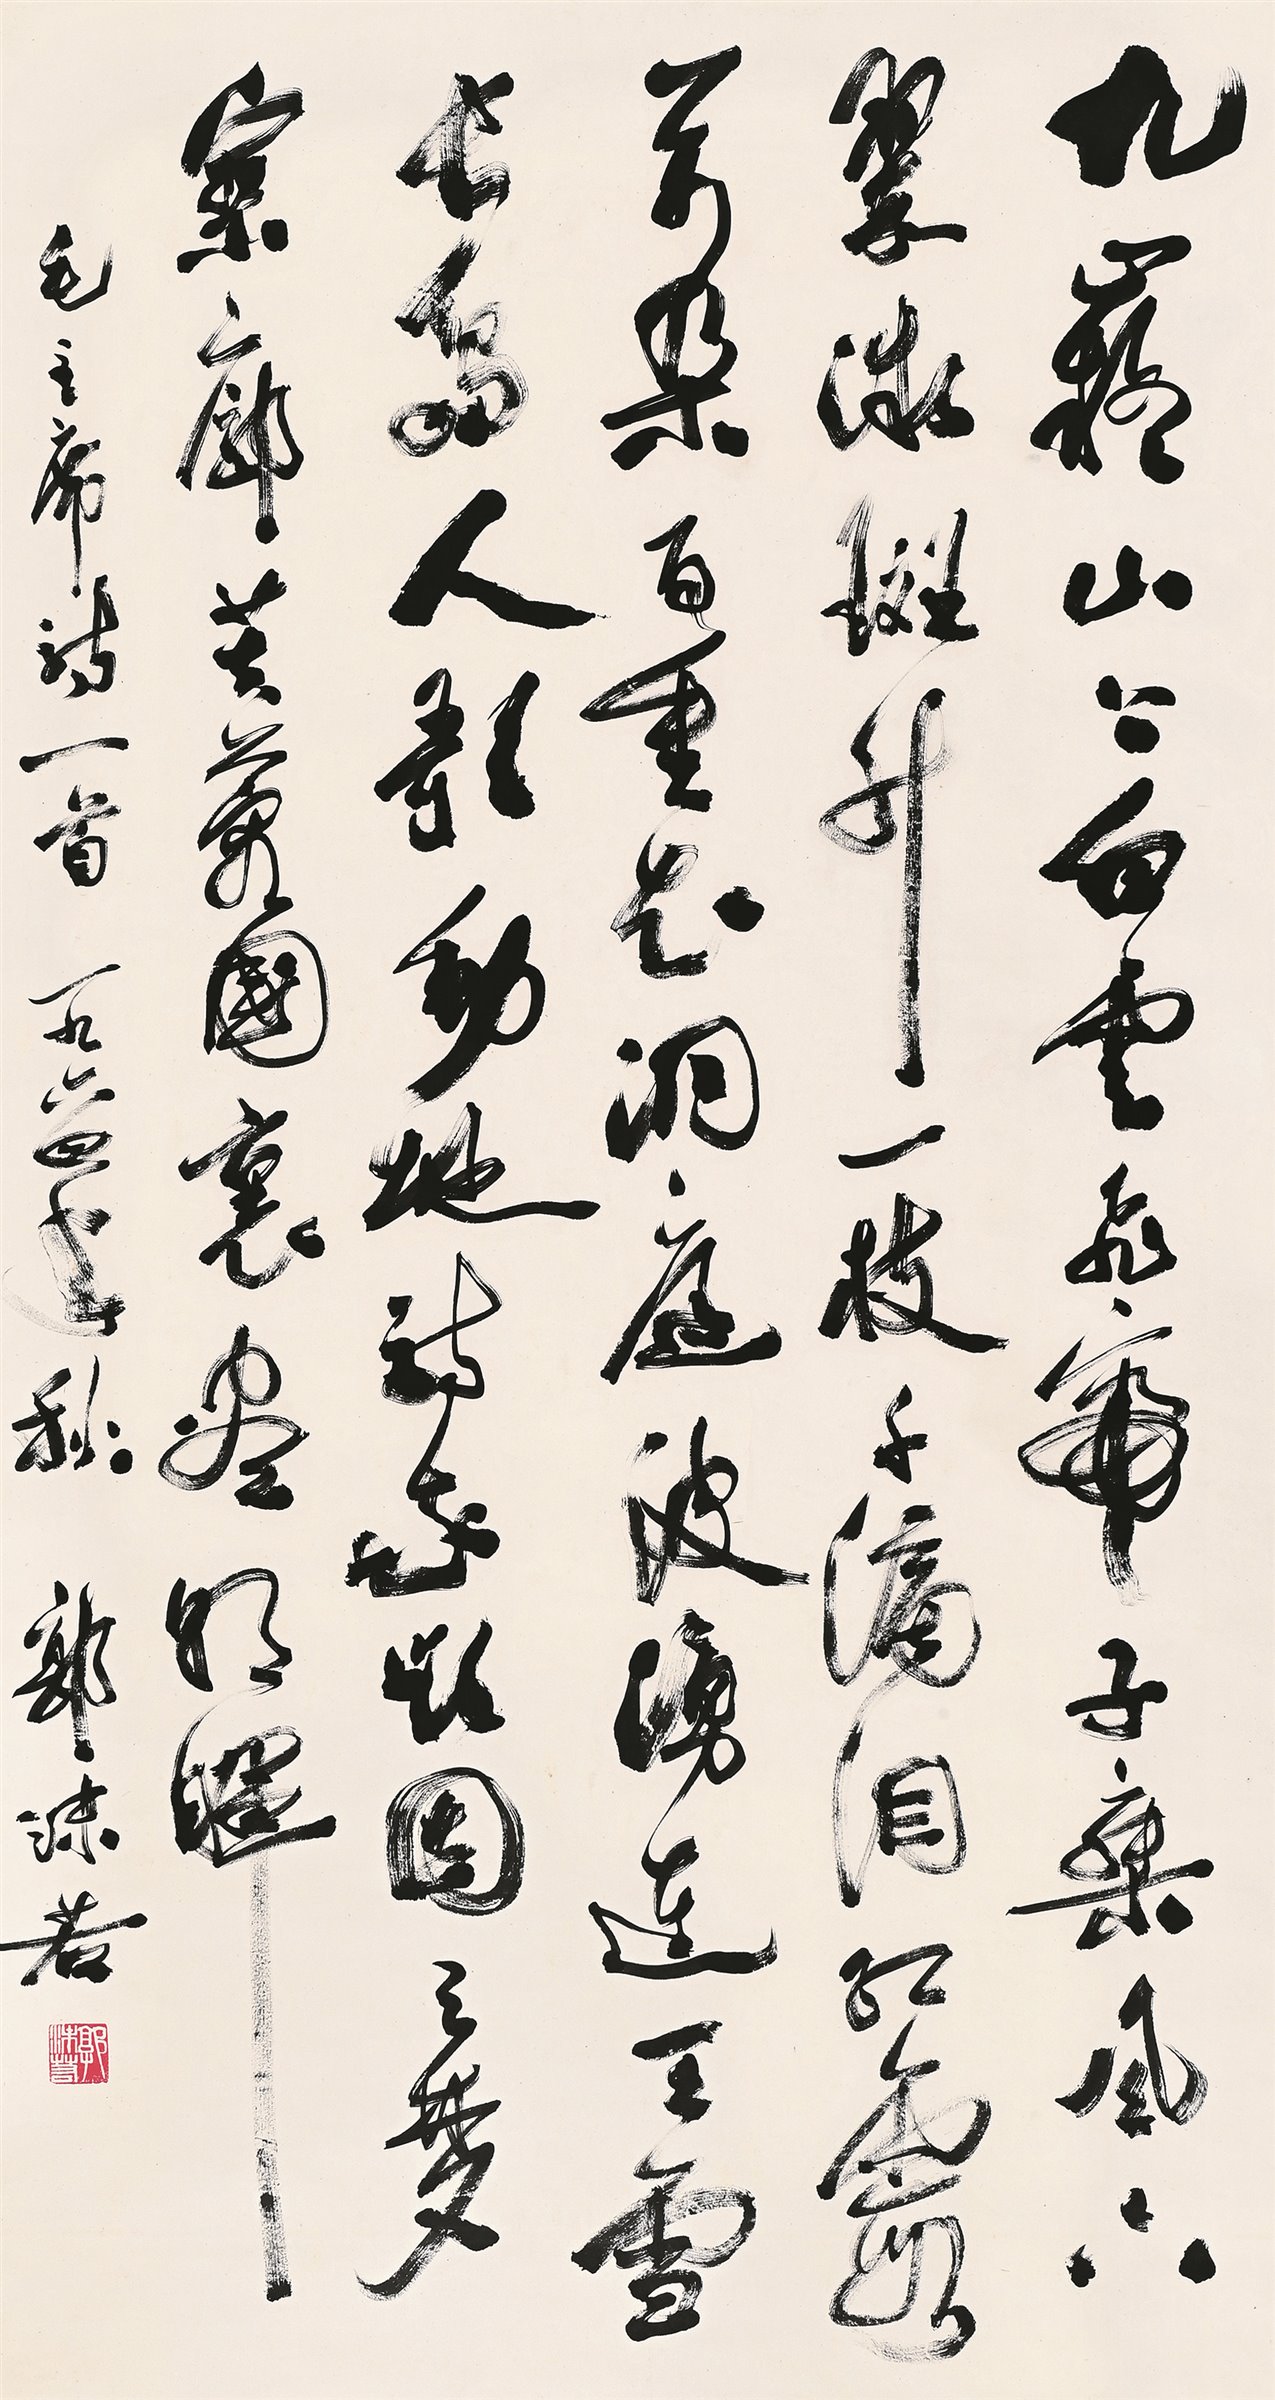 九嶷山上白雲飛帝子乘風下
翠微斑竹一枝千滴泪紅霞
万朵百重衣洞庭波湧連天雪
長島人歌動地詩我欲因之夢
寥廓芙蓉國裏盡朝暉
毛主席詩一首 一九六四年秋 郭沫若
郭沫若